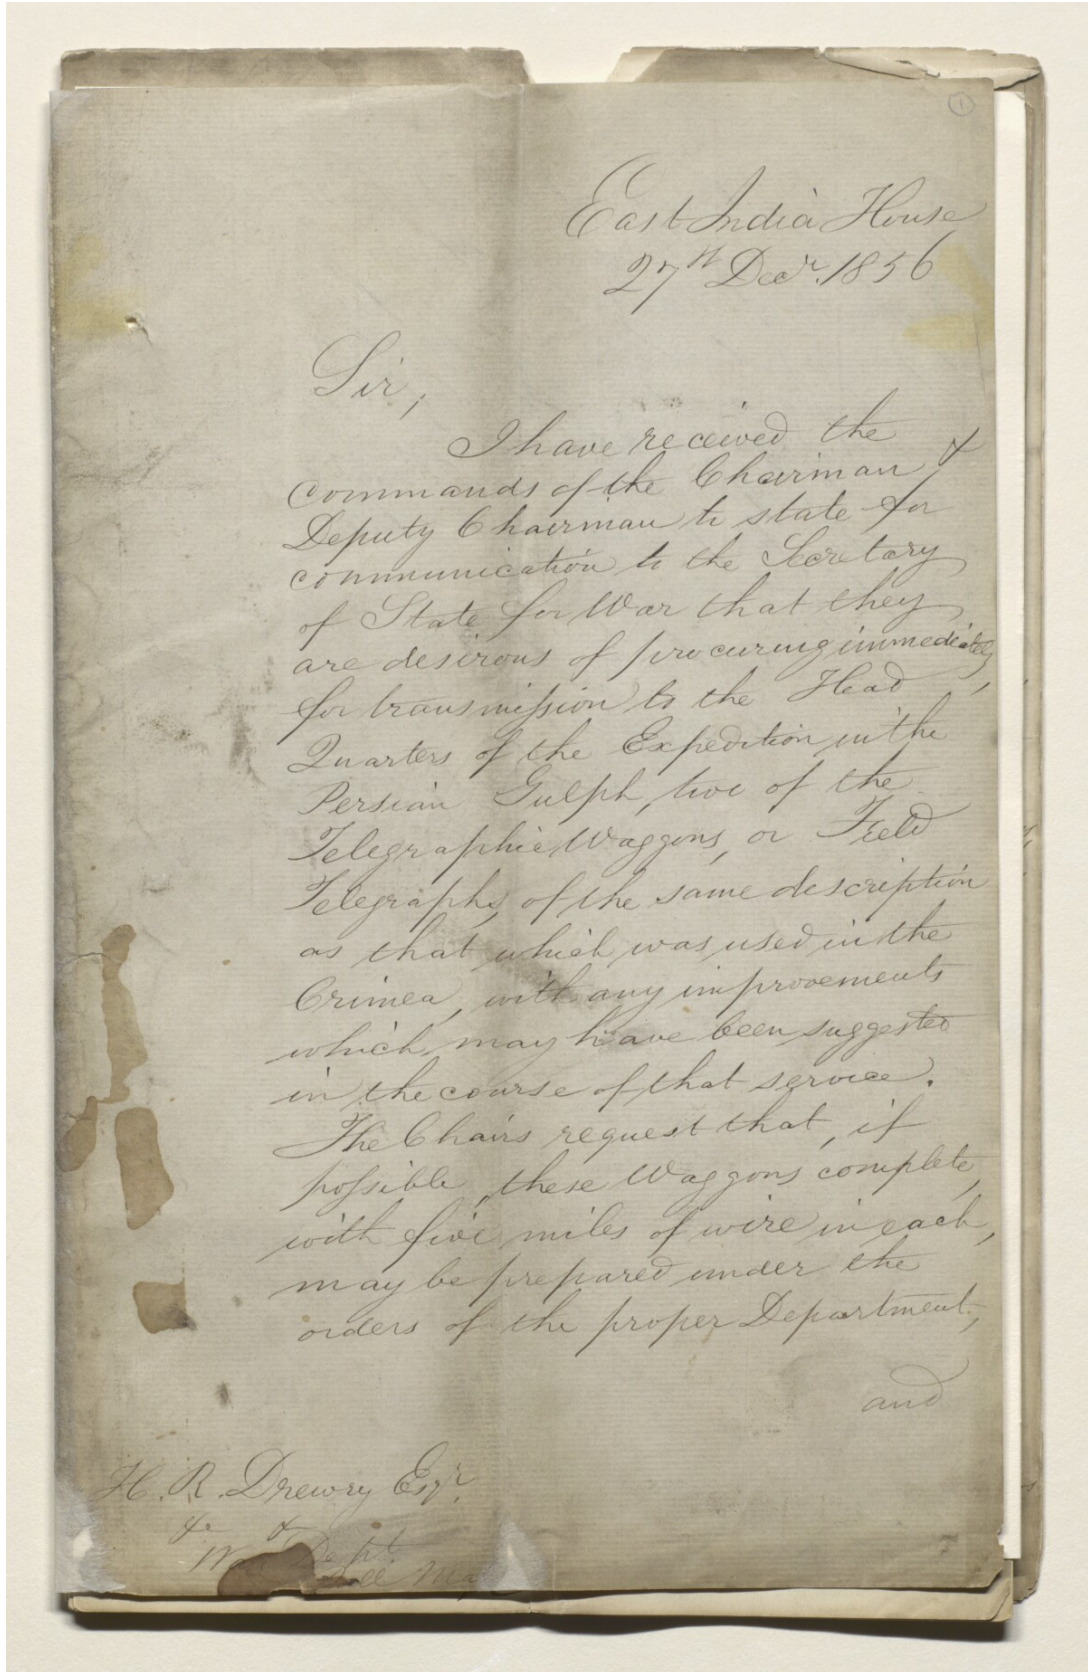 1
East India House
27th Decr. 1856
Sir,
I have received the
commands of the Chairman &
Deputy Chairman to state for
communication to the Secretary
of State for War that they
are desirous of procuring immediately,
for transmission to the Head
Quarters of the Expedition in the
Persian Gulph, two of the
Telegraphic Waggons, or Field
Telegraphs, of the same description
as that which was used in the
Crimea, with any improvements
which may have been suggested
in the course of that service.
The Chairs request that, if
possible, these Waggons complete,
with five miles of wire in each,
may be prepared under the
orders of the proper Department,
and
H. R. Drewry Esqr.
&c &
War Dept.